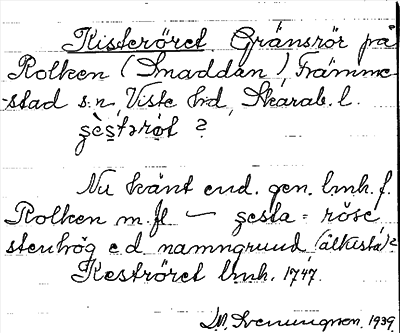 Kisteröret Gränsrör på
Rolken (Smaddan), Främme-
stad s:n, Viste hd, Skarab. l.
şèstərøt ?
Nu känt end. gen. lmh. f.
Rolken m. fl — şesta = röse,
stenhög e.d. namngrund, (ätkista)?
Keströret lmh. 1747.
Svenungson. 1939